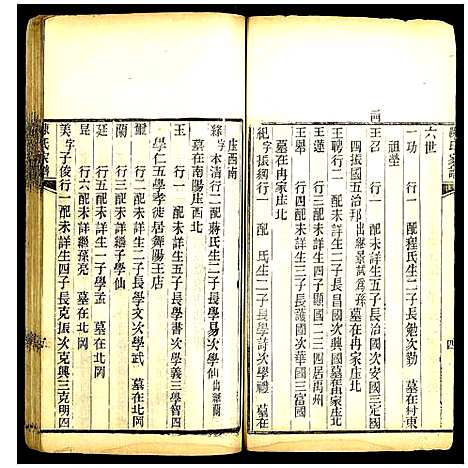 陳氏家譜
四
六世
一功 行二 配程氏生二子長勉次勤 墓在村東
祖塋
王召 行一 配未詳生五子長治國次安國三定國
四振國五治邦出繼景試爲孫墓在冉家庄北
王聘 行二 配未詳生二子長昌國次興國墓在冉家庄北
王蓮 行一 配未詳生四子顯國二三四居禹州
王舉 行四 配未詳生三子長護國次華國三富國
墓在冉家庄北
紀 字振綱行一 配 氏生二子長學詩次學禮 墓在
庄西南
綵 字本清行二配蔣氏生二子長學易次學仙出繼蘭
墓在南陽庄西北
王 行一 配未詳生五子長學書次學義三學智四
學仁五學孝徙居舞陽王店
璽 行二配未詳生二子長學文次學武 墓在北岡
蘭 行六配未詳繼子學仙
昆 行二配未詳生一子學孟 墓在北岡
美 字子俊行一配未詳生四子長克振次克興三克明四
陳氏家譜